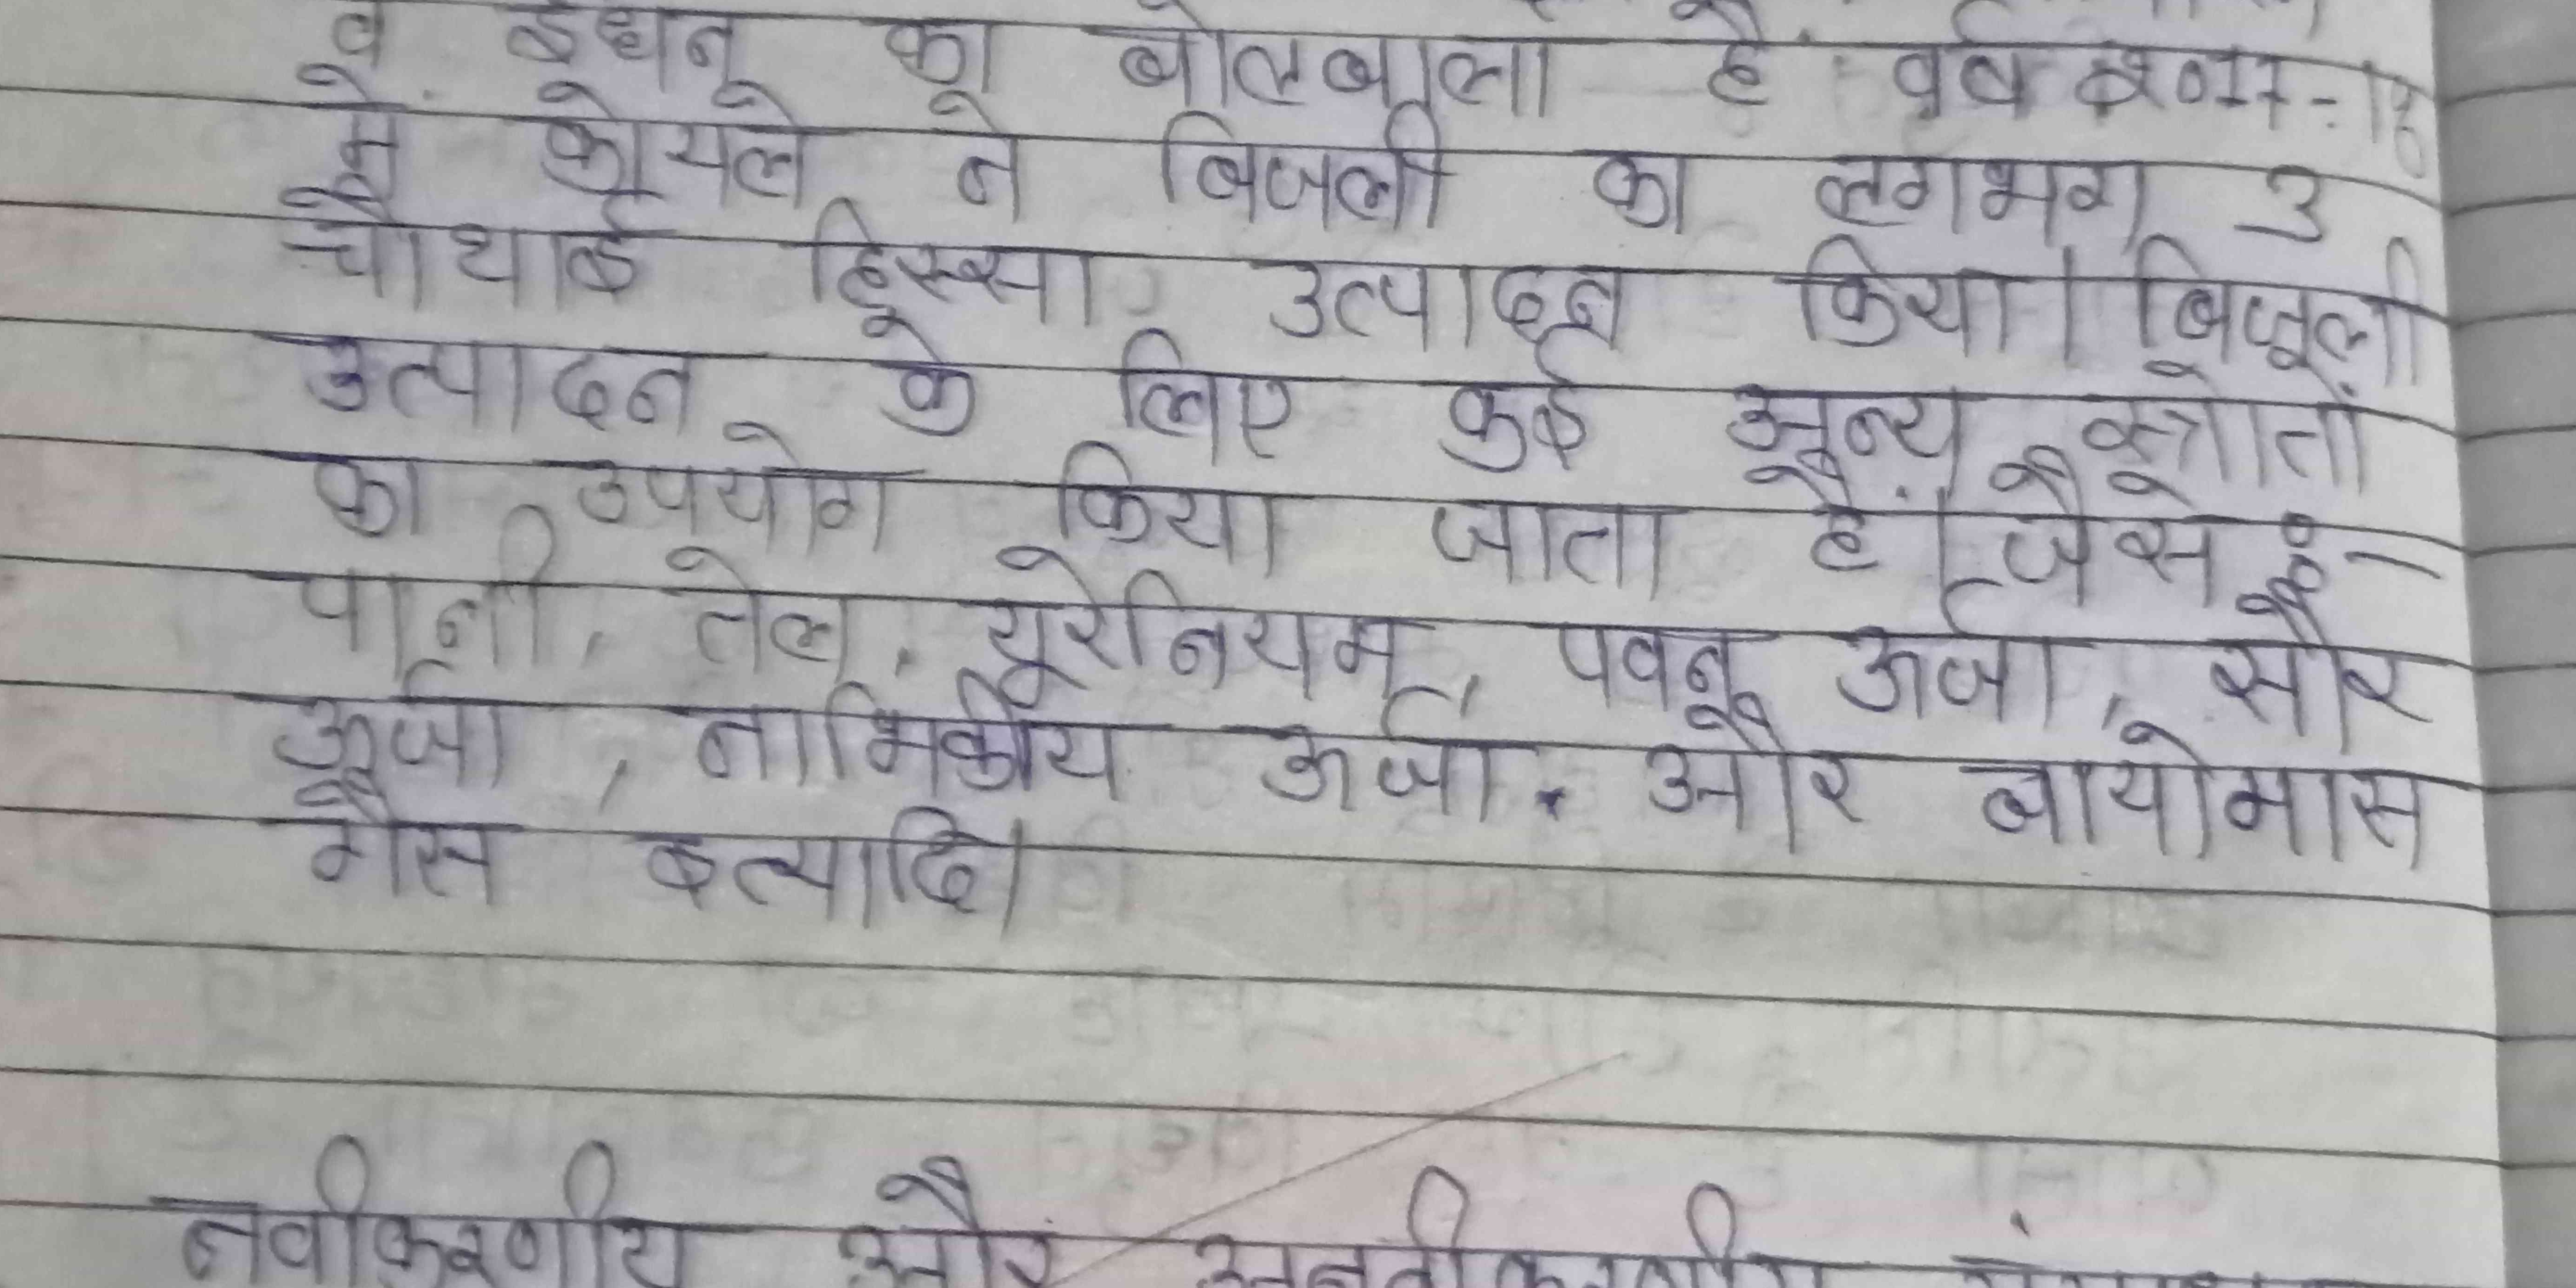 व ईधन का बोलबाला है वर्ष 2017-18
में कोयले ने बिजली का लगभग 3
चौथाई हिस्सा उत्पादन किया। बिजली
उत्पादन के लिए कई अन्य स्त्रोतों
का उपयोग किया जाता है। जैसे :-
पानी, तेल, यूरेनियम, पवन ऊर्जा, सौर
ऊर्जा, नाभिकीय ऊर्जा. और बायोमास
गैस इत्यादि।
नवीकरणीय और अनवीकरणीय